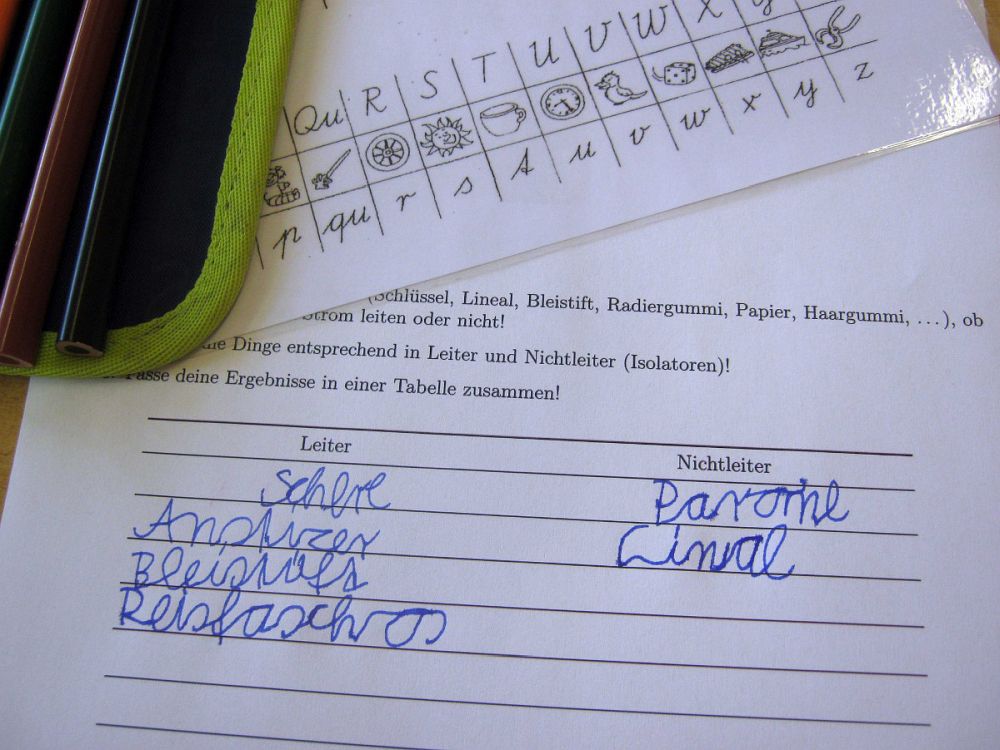 Qu R S T U V W X y
p qu r s t u v w x y z
(Schlüssel, Lineal, Bleistift, Radiergummi, Papier, Haargummi, …), ob
Strom leiten oder nicht!
die Dinge entsprechend in Leiter und Nichtleiter (Isolatoren)!
Fasse deine Ergebnisse in einer Tabelle zusammen!
Leiter Nichtleiter
Schere
Anspizer Lineal
Bleistift